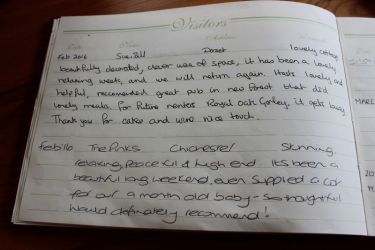 Visitors
Date Name Address Remarks
Feb 2016 Sue, Bill Dorset lovely cottage
beautifully decorated, clever use of space, it has been a lovely
relaxing week, and we will return again. Hosts lovely and
helpful, recommended great pub in new forest that did
lovely meals. for future mentor Royal Oak Gorley, it gets busy
Thank you for cakes and wine nice touch.
feb 16 The Pinks Chichester Stunning,
relaxing, peaceful & high end. its been a
beautiful long weekend, even supplied a cot
for our 9 month old baby - so thoughtful
Would definately recommend!
MARC
20